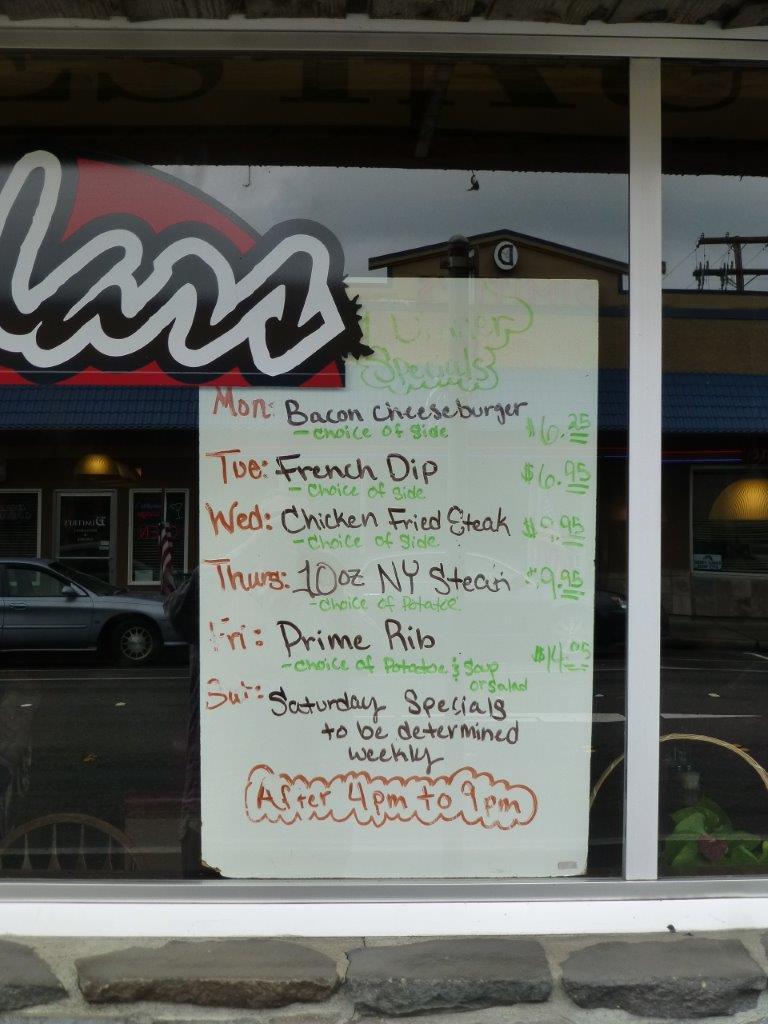 Dinner
Specials
Mon: Bacon cheeseburger $6.25
- choice of side
Tue: French Dip $6.95
- choice of side
Wed: Chicken Fried Steak $9.95
- choice of side
Thurs: 10oz NY Steak $9.95
- choice of Potatoe
Fri: Prime Rib $14.95
- choice of Potatoe & Soup
or salad
Sat: Saturday Specials
to be determined
weekly
After 4pm to 9pm